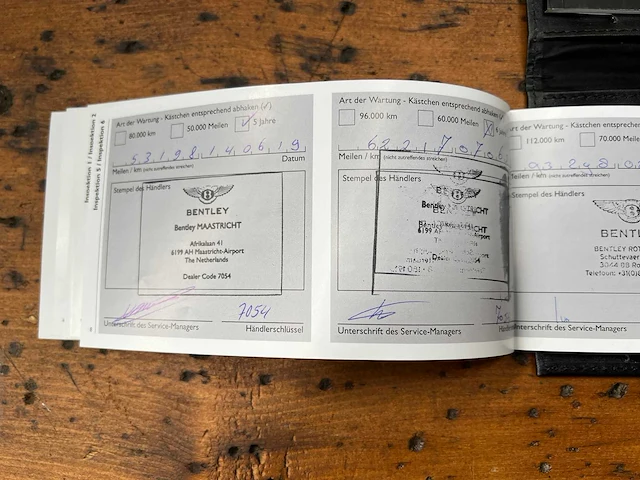 Inspektion 1 / Inspektion 2
Inspektion 5 / Inspektion 6
Art der Wartung - Kästchen entsprechend abhaken (✓)
80.000 km
50.000 Meilen
5 Jahre
5 3 1 9 8 1 4 0 6 1 9
Meilen / km (nicht zutreffendes streichen)
Datum
Stempel des Händlers
BENTLEY
Bentley MAASTRICHT
Afrikalaan 41
6199 AH Maastricht-Airport
The Netherlands
Dealer Code 7054
7054
Unterschrift des Service-Managers
Händlerschlüssel
Art der Wartung - Kästchen entsprechend abhaken
96.000 km
60.000 Meilen
Meilen / km (nicht zutreffendes streichen)
Stempel des Händlers
Unterschrift des Service-Managers
112.000 km
70.000 Meilen
Meilen / km (nicht zutreffendes streichen)
Stempel des Händlers
BENTL
BENTLEY ROT
Schuttevaer
3044 BB Ro
Telefoon: +31(0)
Unterschrift des Service-Managers